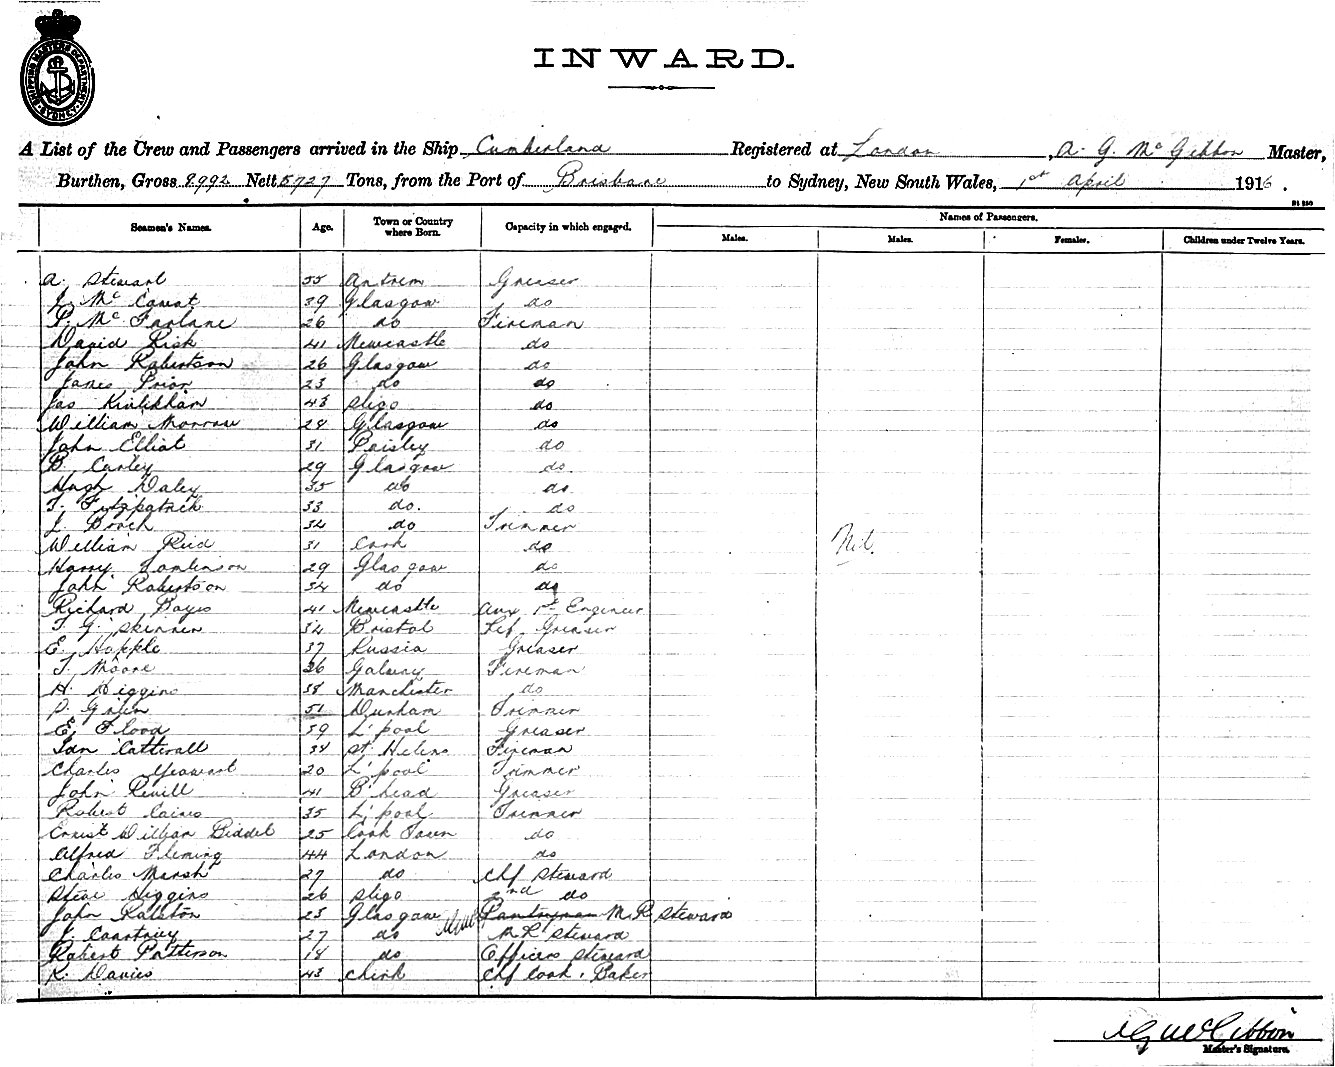 SHIPPING MASTERS DEPARTMENT SYDNEY
INWARD.
A List of the Crew and Passengers arrived in the Ship Cumberland Registered at London, A. G. McGibbon Master,
Burthen, Gross 8992 Nett 5727 Tons, from the Port of Brisbane to Sydney, New South Wales, 1st April 1916.
Names of Passengers.
Seamen's Names. Age. Town or Country where Born. Capacity in which engaged. Males. Males. Females. Children under Twelve Years.
A. Stewart 55 Antrim Greaser
J. McCawat 39 Glasgow do
P. McFarlane 26 do Fireman
David Kisk 41 Newcastle do
John Robertson 26 Glasgow do
James Prior 23 do do
Jas 43 Sligo do
William Morrow 28 Glasgow do
John Elliot 31 Paisley do
B. Curley 29 Glasgow do
Hugh Daley 35 do do
T. Fitzpatrick 33 do. do
J. Broch 34 do Trimmer
William Reid 31 Cork do
Nil.
Harry Tomlinson 29 Glasgow do
John Robertson 34 do do
Richard Bayes 41 Newcastle Aux 1st Engineer
T. G. Skinner 34 Bristol Ref Greaser
E. Hopple 37 Russia Greaser
T. Moore 26 Galway Fireman
H. Higgins 38 Manchester do
P. 51 Durham Trimmer
E. Flood 39 L'pool Greaser
Catterall 34 St Helens Fireman
Charles 20 L'pool Trimmer
John Revill 41 B'head Greaser
Robert Caines 35 L'pool Trimmer
Ernest William Biddel 25 Cook Town do
Alfred Fleming 44 London do
Charles Marsh 27 do Chf Steward
Steve Higgins 26 Sligo 2nd do
John Ralston 23 Glasgow Pantryman M.R Steward
J. Courtney 27 do M R Steward
Robert Patterson 18 do Officers Steward
K. Davies 43 Chirk Chf Cook & Baker
A G McGibbon
Master's Signature.